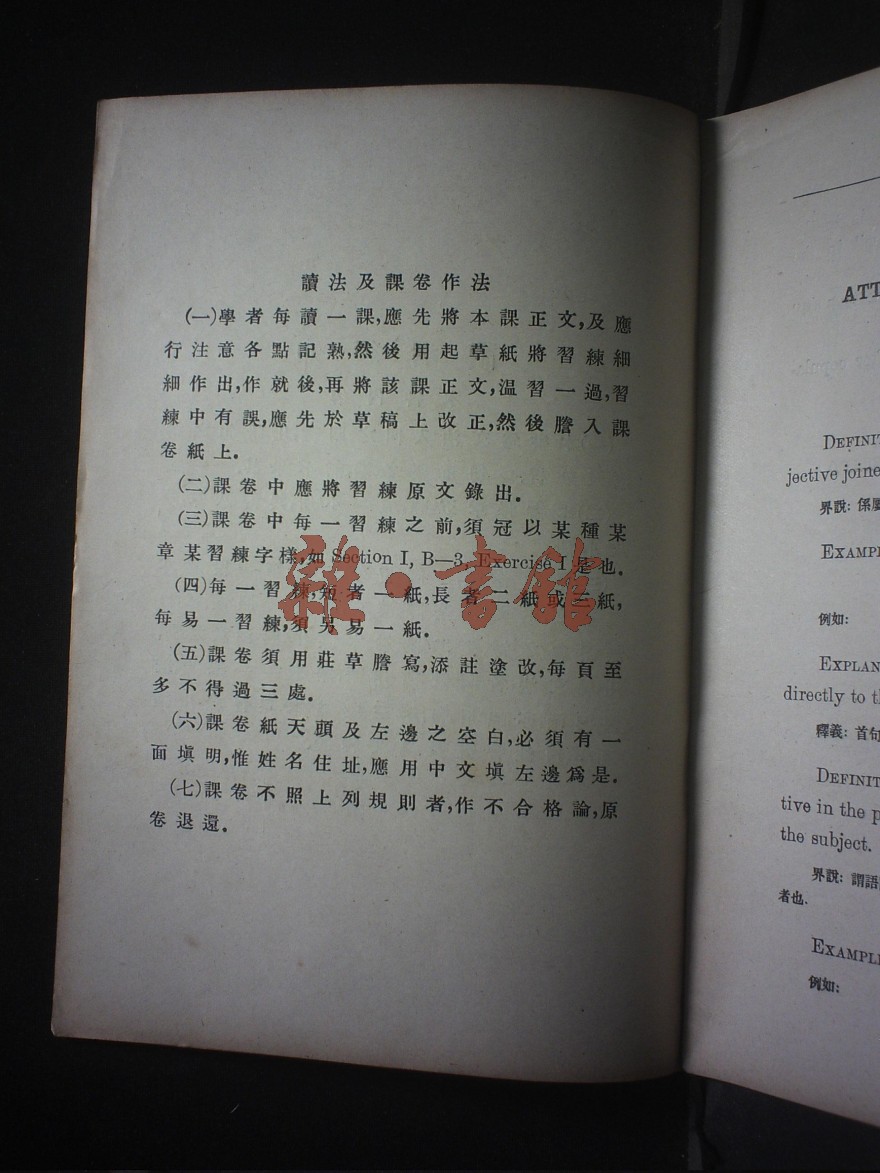 讀法及課卷作法
(一)學者每讀一課,應先將本課正文,及應
行注意各點記熟,然後用起草紙將習練細
細作出,作就後,再將該課正文,温習一過,習
練中有誤,應先於草稿上改正,然後謄入課
卷紙上.
(二)課卷中應將習練原文錄出.
(三)課卷中每一習練之前,須冠以某種某
章某習練字樣,如 Section I, B—3, Exercise I 是也.
(四)每一習練,短者一紙,長者二紙或三紙,
每易一習練,須另易一紙.
(五)課卷須用莊草謄寫,添註塗改,每頁至
多不得過三處.
(六)課卷紙天頭及左邊之空白,必須有一
面塡明,惟姓名住址,應用中文塡左邊爲是.
(七)課卷不照上列規則者,作不合格論,原
卷退還.
雜·書館
ATT
DEFINIT
jective joine
界說: 係
EXAMP
例如:
EXPLAN
directly to t
釋義: 首句
DEFINIT
tive in the p
the subject.
界說: 謂語
者也.
EXAMPL
例如: